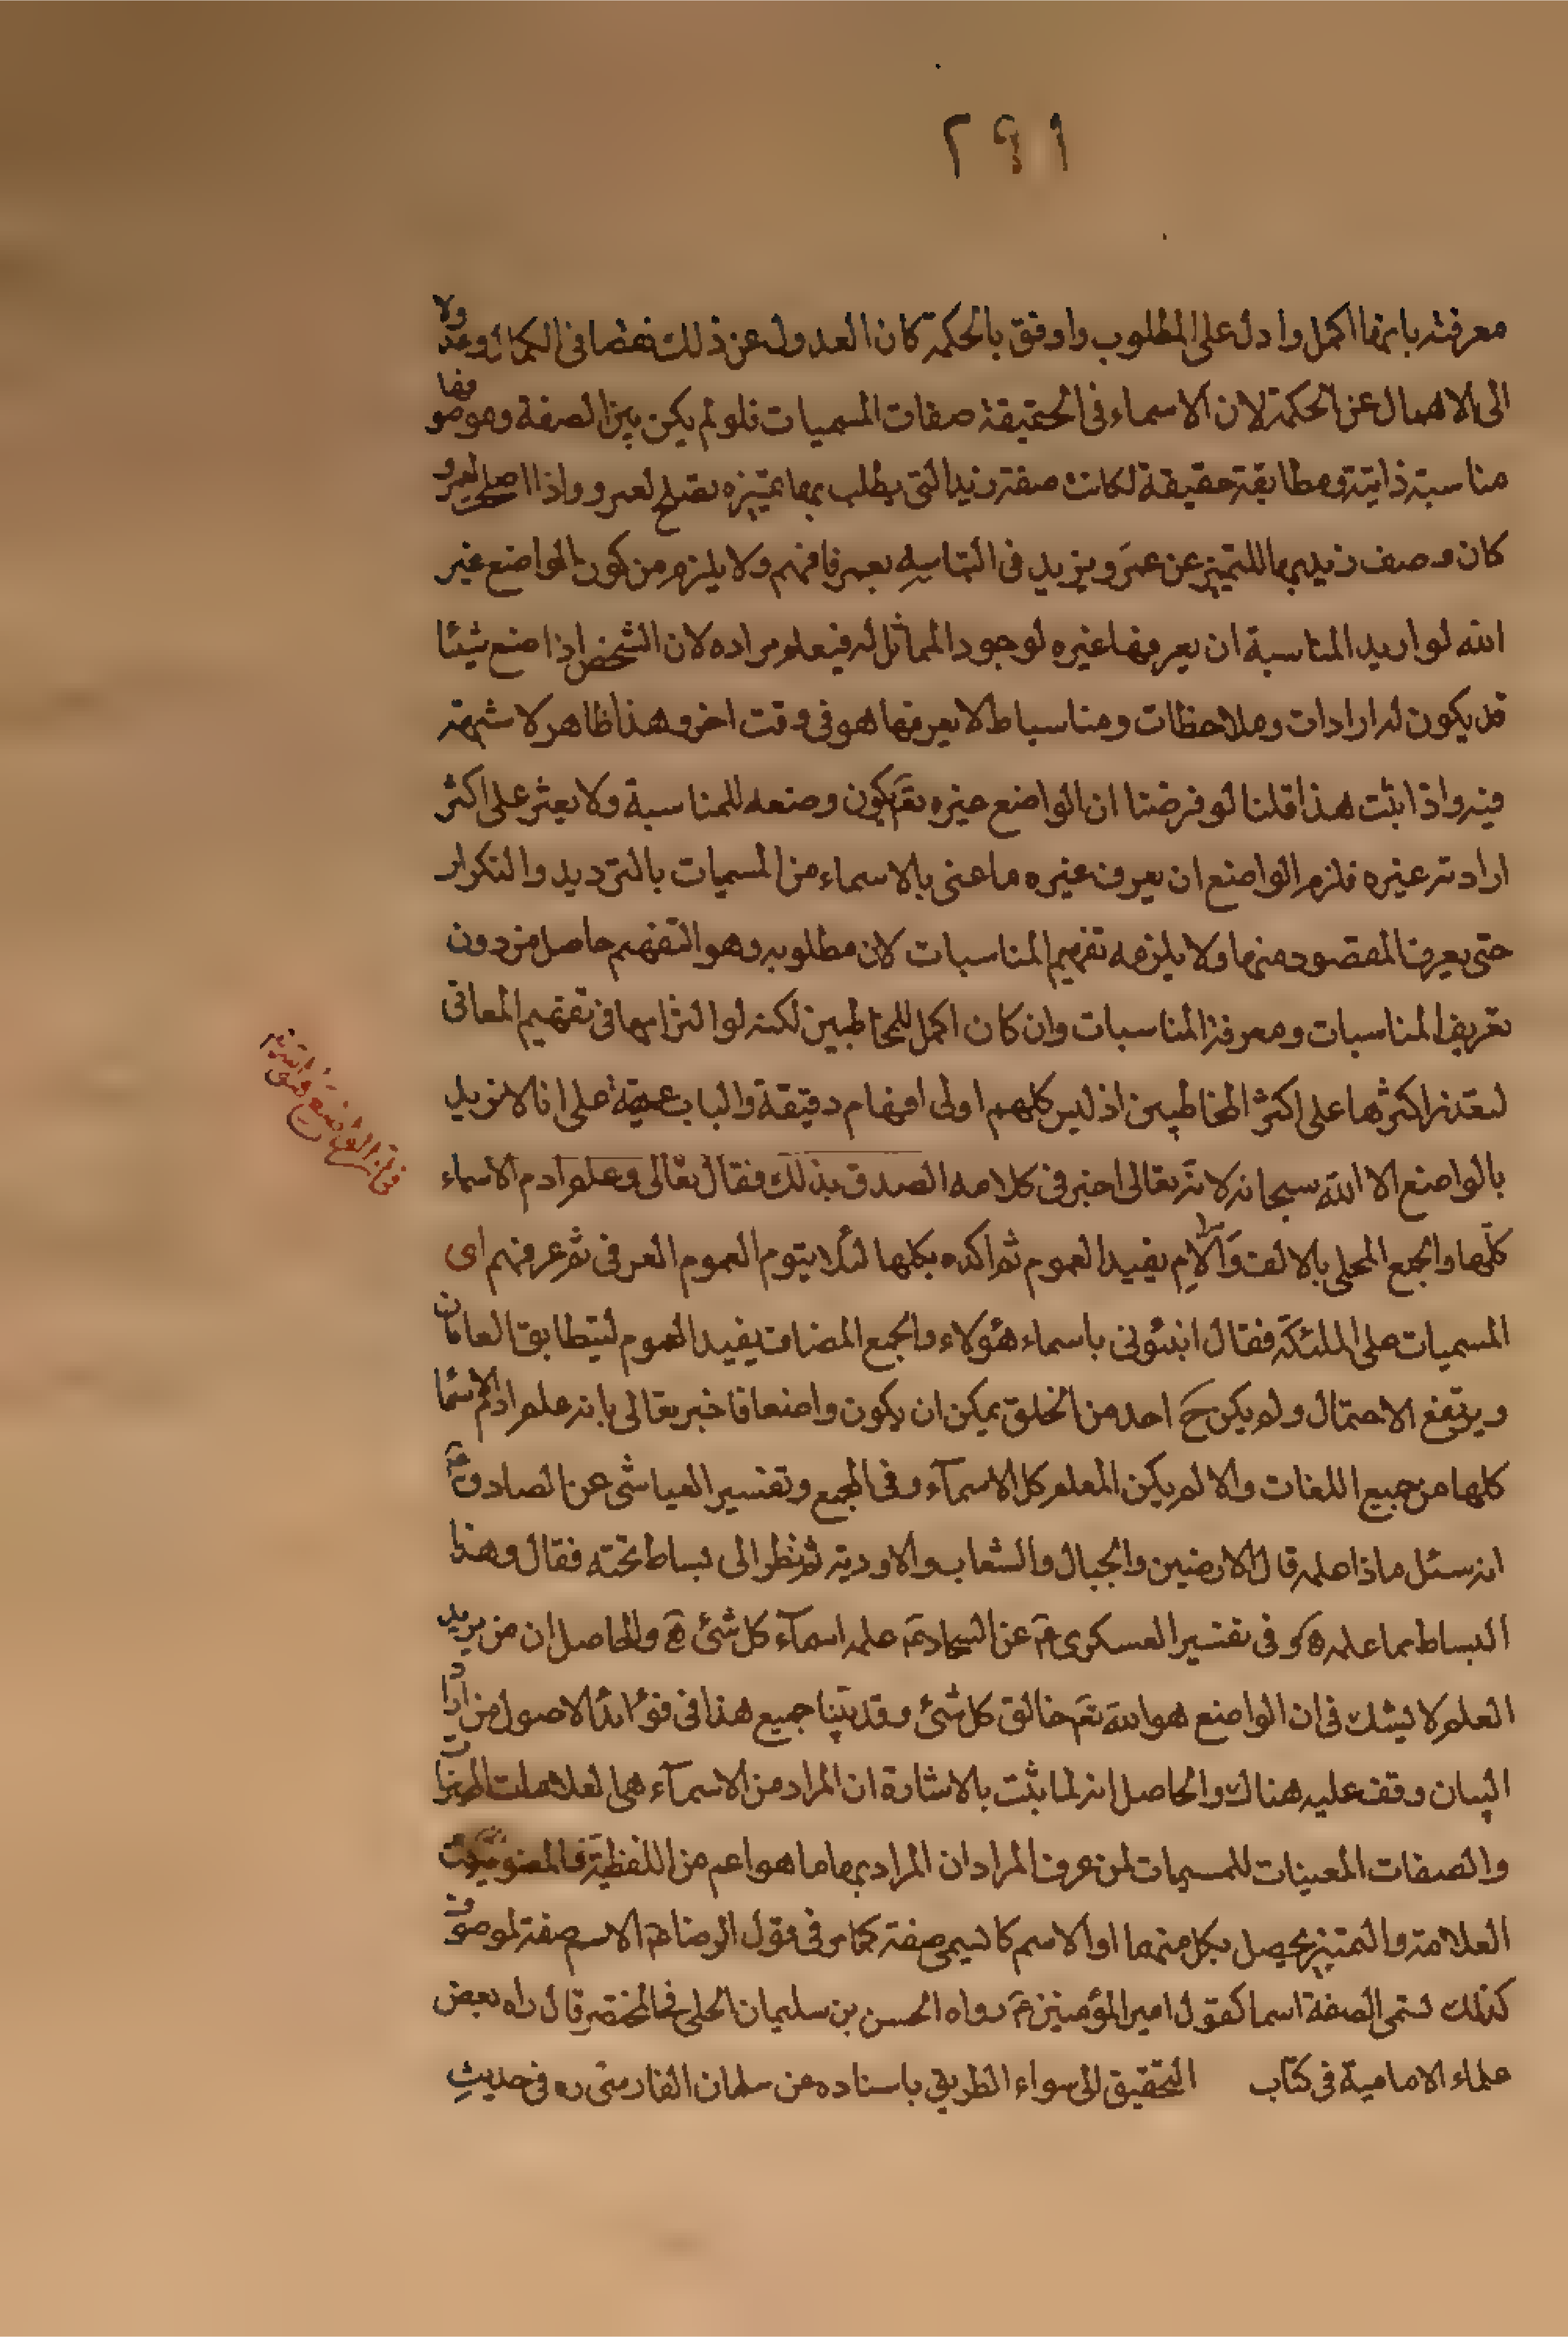 ٢٩١
معرفته بانها اكمل وادل على المطلوب واوفق بالحكمة كان العدول عن ذلك نقضا في الكمال وعدولا
الى الاهمال عن الحكمة لان الاسماء في الحقيقة صفات المسميات فلو لم يكن بين الصفة وموصوفها
مناسبة ذاتية ومطابقة حقيقة لكانت صفة زيد التي يطلب بها تميزه تصلح لعمرو واذا صلح لعمرو
كان وصف زيد بها للتميز عن عمرو يزيد في التباسه بعمر فافهم ولا يلزم من كون الواضع غير
الله لو اريد المناسبة ان يعرفها غيره لوجود المماثل له فيعلم مراده لان الشخص اذا صنع شيئا
قد يكون له ارادات وملاحظات ومناسباط لا يعرفها هو في وقت اخر وهذا ظاهر لا شبهة
فيه واذا ثبت هذا قلنا لو فرضنا ان الواضع غيره تعَ يكون وضعه للمناسبة ولا يعثر على اكثر
ارادته غيره فلزم الواضع ان يعرف غيره ما عنى بالاسماء من المسميات بالترديد والتكرار
حتى يعرف المقصود منها ولا يلزمه تفهيم المناسبات لان مطلوبه وهو التفهيم حاصل من دون
تعريف المناسبات ومعرفة المناسبات وان كان اكمل للمخاطبين لكنه لو التزامها في تفهيم المعاني
لتعذر اكثرها على اكثر المخاطبين اذ ليس كلهم اولى افهام دقيقة والباب على انا لا نزيد
بالواضع الا الله سبحانه لانه تعالى اخبر في كلامه الصدق بذلك فقال تعالى وعلم ادم الاسماء
كلها والجمع المحلى بالالف واللام يفيد العموم ثم اكده بكلها لئلا يتوم العموم العرفي ثم عرضهم اى
المسميات على الملئكة فقال انبئونى باسماء هؤلاء والجمع المضاف يفيد العموم ليتطابق العامان
ويرتفع الاحتمال ولم يكن ح احد من الخلق يمكن ان يكون واضعا فاخبر تعالى بانه علم ادم الاسما
كلها من جميع اللغات والا لم يكن المعلم كل الاسمآء وفي المجمع وتفسير العياشى عن الصادق عَ
انه سئل ماذا علمه قال الارضين والجبال والشعاب والاودية ثم نظر الى بساط تحته فقال وهذا
البساط مما علمه وفى تفسير العسكرى عَ عن السجاد عَ علمه اسمآء كل شئ والحاصل ان من يريد
العلم لا يشك فى ان الواضع هو الله تعَ خالق كل شئ وقد بينا جميع هذا فى فوائد الاصول من اراد
البيان وقف عليه هناك والحاصل انه لما ثبت بالاشارة ان المراد من الاسمآء هى العلامات المميزات
والصفات المعينات للمسميات لمن عرف المراد ان المراد بها ما هو اعم من اللفظية والمعنوية
العلامة والتميز يحصل بكل منهما او الاسم كا يسمى صفة كما مر فى قول الرضا عَ الاسم صفة لموصوف
كذلك تسمى الصفة اسما كقول امير المؤمنين عَ رواه الحسن بن سليمان الحلى فى المختصر قال راه بعض
علماء الامامية فى كتاب التحقيق الى سواء الطريق باسناده عن سلمان الفارسى ره فى حديث
فى ان الواضع هو الله